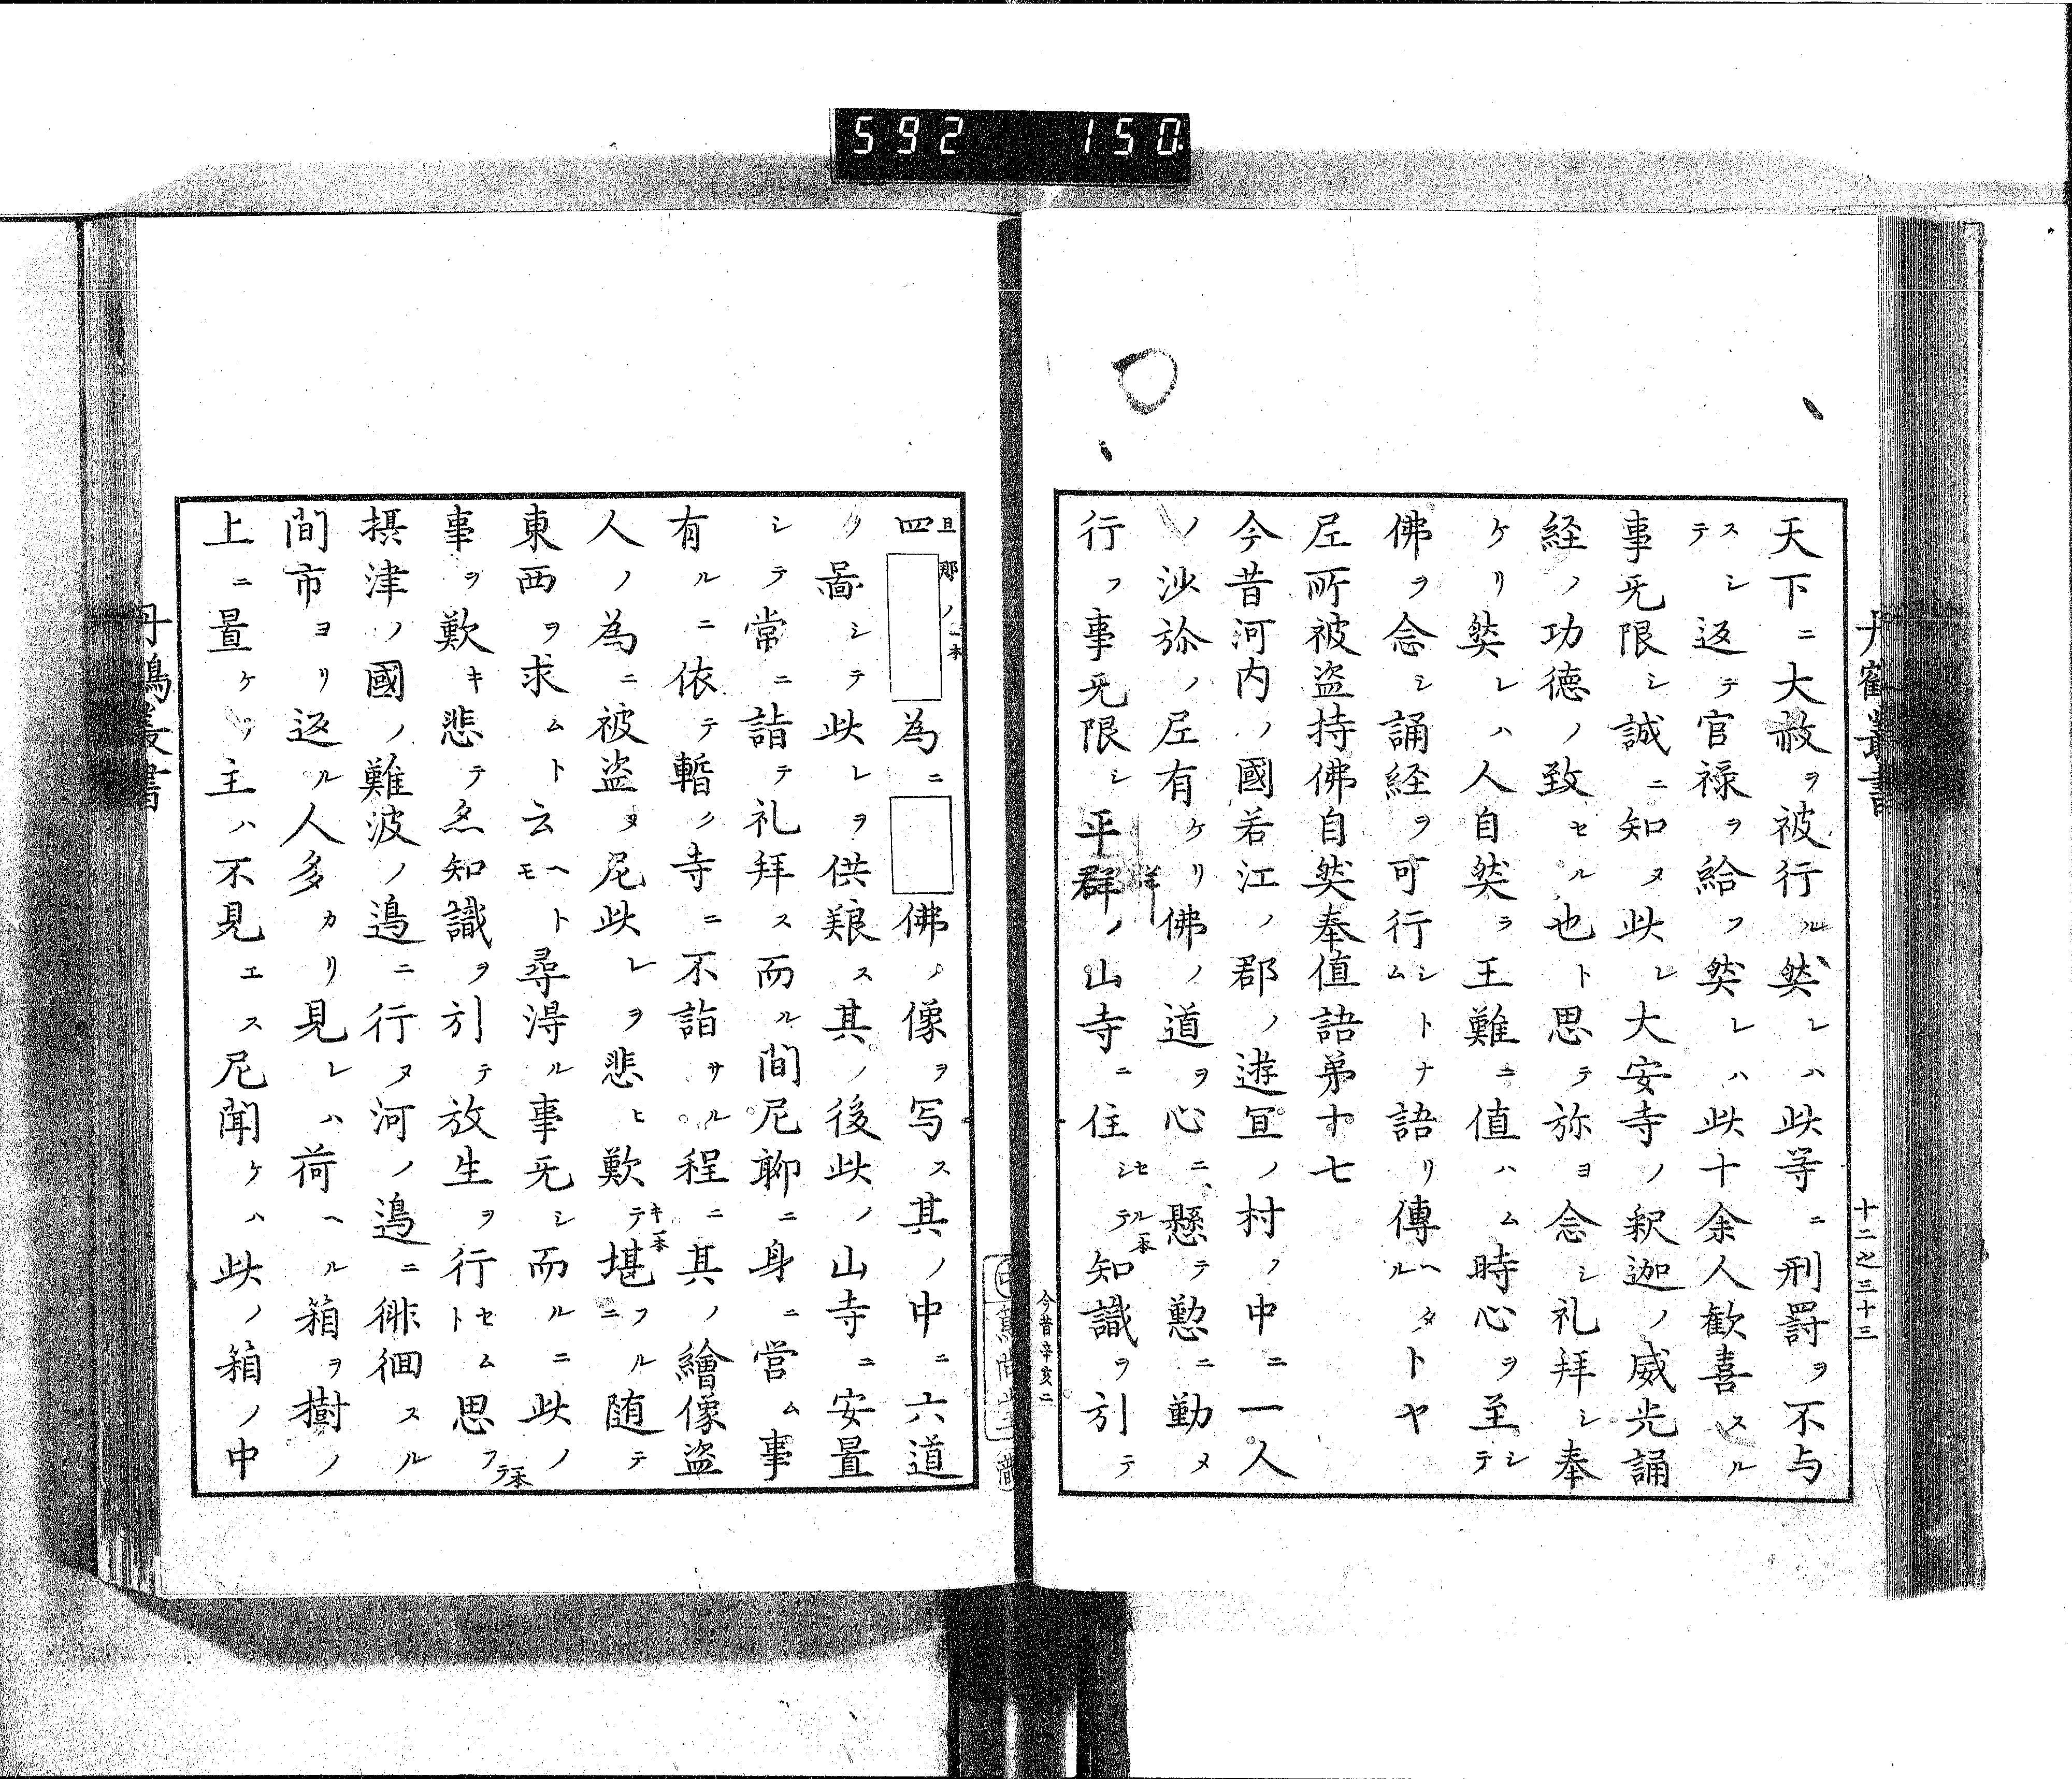 592 150
丹鶴叢書
十二之三十三
天下ニ大赦ヲ被行ル然レハ此等ニ刑罸ヲ不与
スシテ返テ官禄ヲ給フ然レハ此十余人歓喜スル
事旡限シ誠ニ知ヌ此レ大安寺ノ釈迦ノ威光誦
経ノ功徳ノ致セル也ト思テ弥ヨ念シ礼拜シ奉
ケリ然レハ人自然ラ王難ニ値ハム時心ヲ至シテ
佛ヲ念シ誦経ヲ可行シムトナ語リ傳ヘルタトヤ
尼所被盗持佛自然奉値語苐十七
今昔河内ノ國若江ノ郡ノ遊冝ノ村ノ中ニ一人
ノ沙弥ノ尼有ケリ佛ノ道ヲ心ニ懸テ懃ニ勤メ
行フ事旡限シ平群ノ山寺ニ住シセテル一本知識ヲ引テ
今昔辛亥二
四旦那ノ一本為ニ佛ノ像ヲ写ス其ノ中ニ六道
ノ啚シテ此レヲ供粮ス其ノ後此ノ山寺ニ安置
シテ常ニ詣テ礼拜ス而ル間尼聊ニ身ニ営ム事
有ルニ依テ暫ク寺ニ不詣サル程ニ其ノ繪像盗
人ノ為ニ被盗ヌ尼此レヲ悲ヒ歎テキ一本堪フルニ随テ
東西ヲ求ムト云ヘトモ尋淂ル事旡シ而ルニ此ノ
事ヲ歎キ悲テ亦知識ヲ引テ放生ヲ行セムト思フテ一本
摂津ノ國ノ難波ノ邉ニ行ヌ河ノ邉ニ徘徊スル
間市ヨリ返ル人多カリ見レハ荷ヘル箱ヲ樹ノ
上ニ置ケリ主ハ不見エス尼聞ケハ此ノ箱ノ中
丹鶴叢書